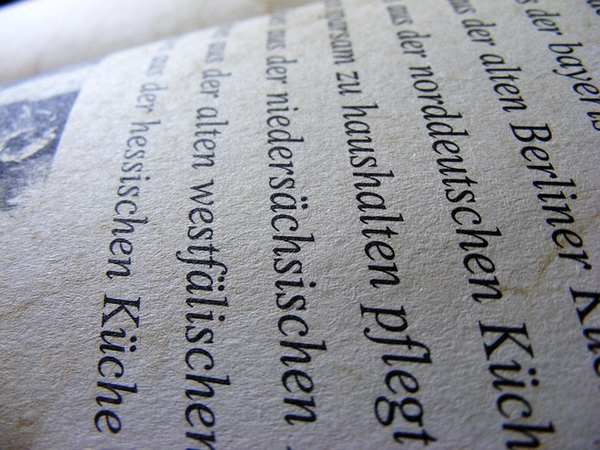 der bayeris
der alten Berliner Kü
aus der norddeutschen Küch
zu haushalten pflegt
aus der niedersächsischen
aus der alten westfälischen
aus der hessischen Küche